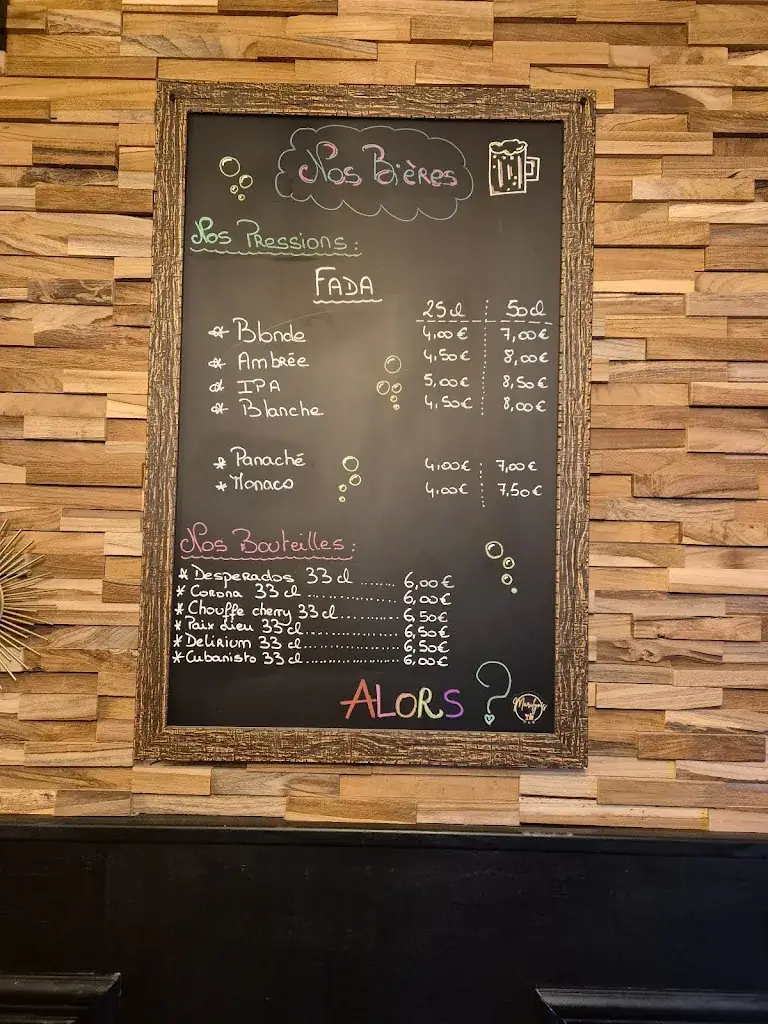 Nos Bières
Nos Pressions :
FADA
25 cl 50 cl
* Blonde 4,00€ 7,00€
* Ambrée 4,50€ 8,00€
* IPA 5,00€ 8,50€
* Blanche 4,50€ 8,00€
* Panaché 4,00€ 7,00€
* Monaco 4,00€ 7,50€
Nos Bouteilles :
* Desperados 33 cl ........ 6,00€
* Corona 33 cl .................... 6,00€
* Chouffe cherry 33 cl ............ 6,50€
* Paix dieu 33 cl .................. 6,50€
* Delirium 33 cl .................. 6,50€
* Cubanisto 33 cl .................. 6,00€
ALORS ?